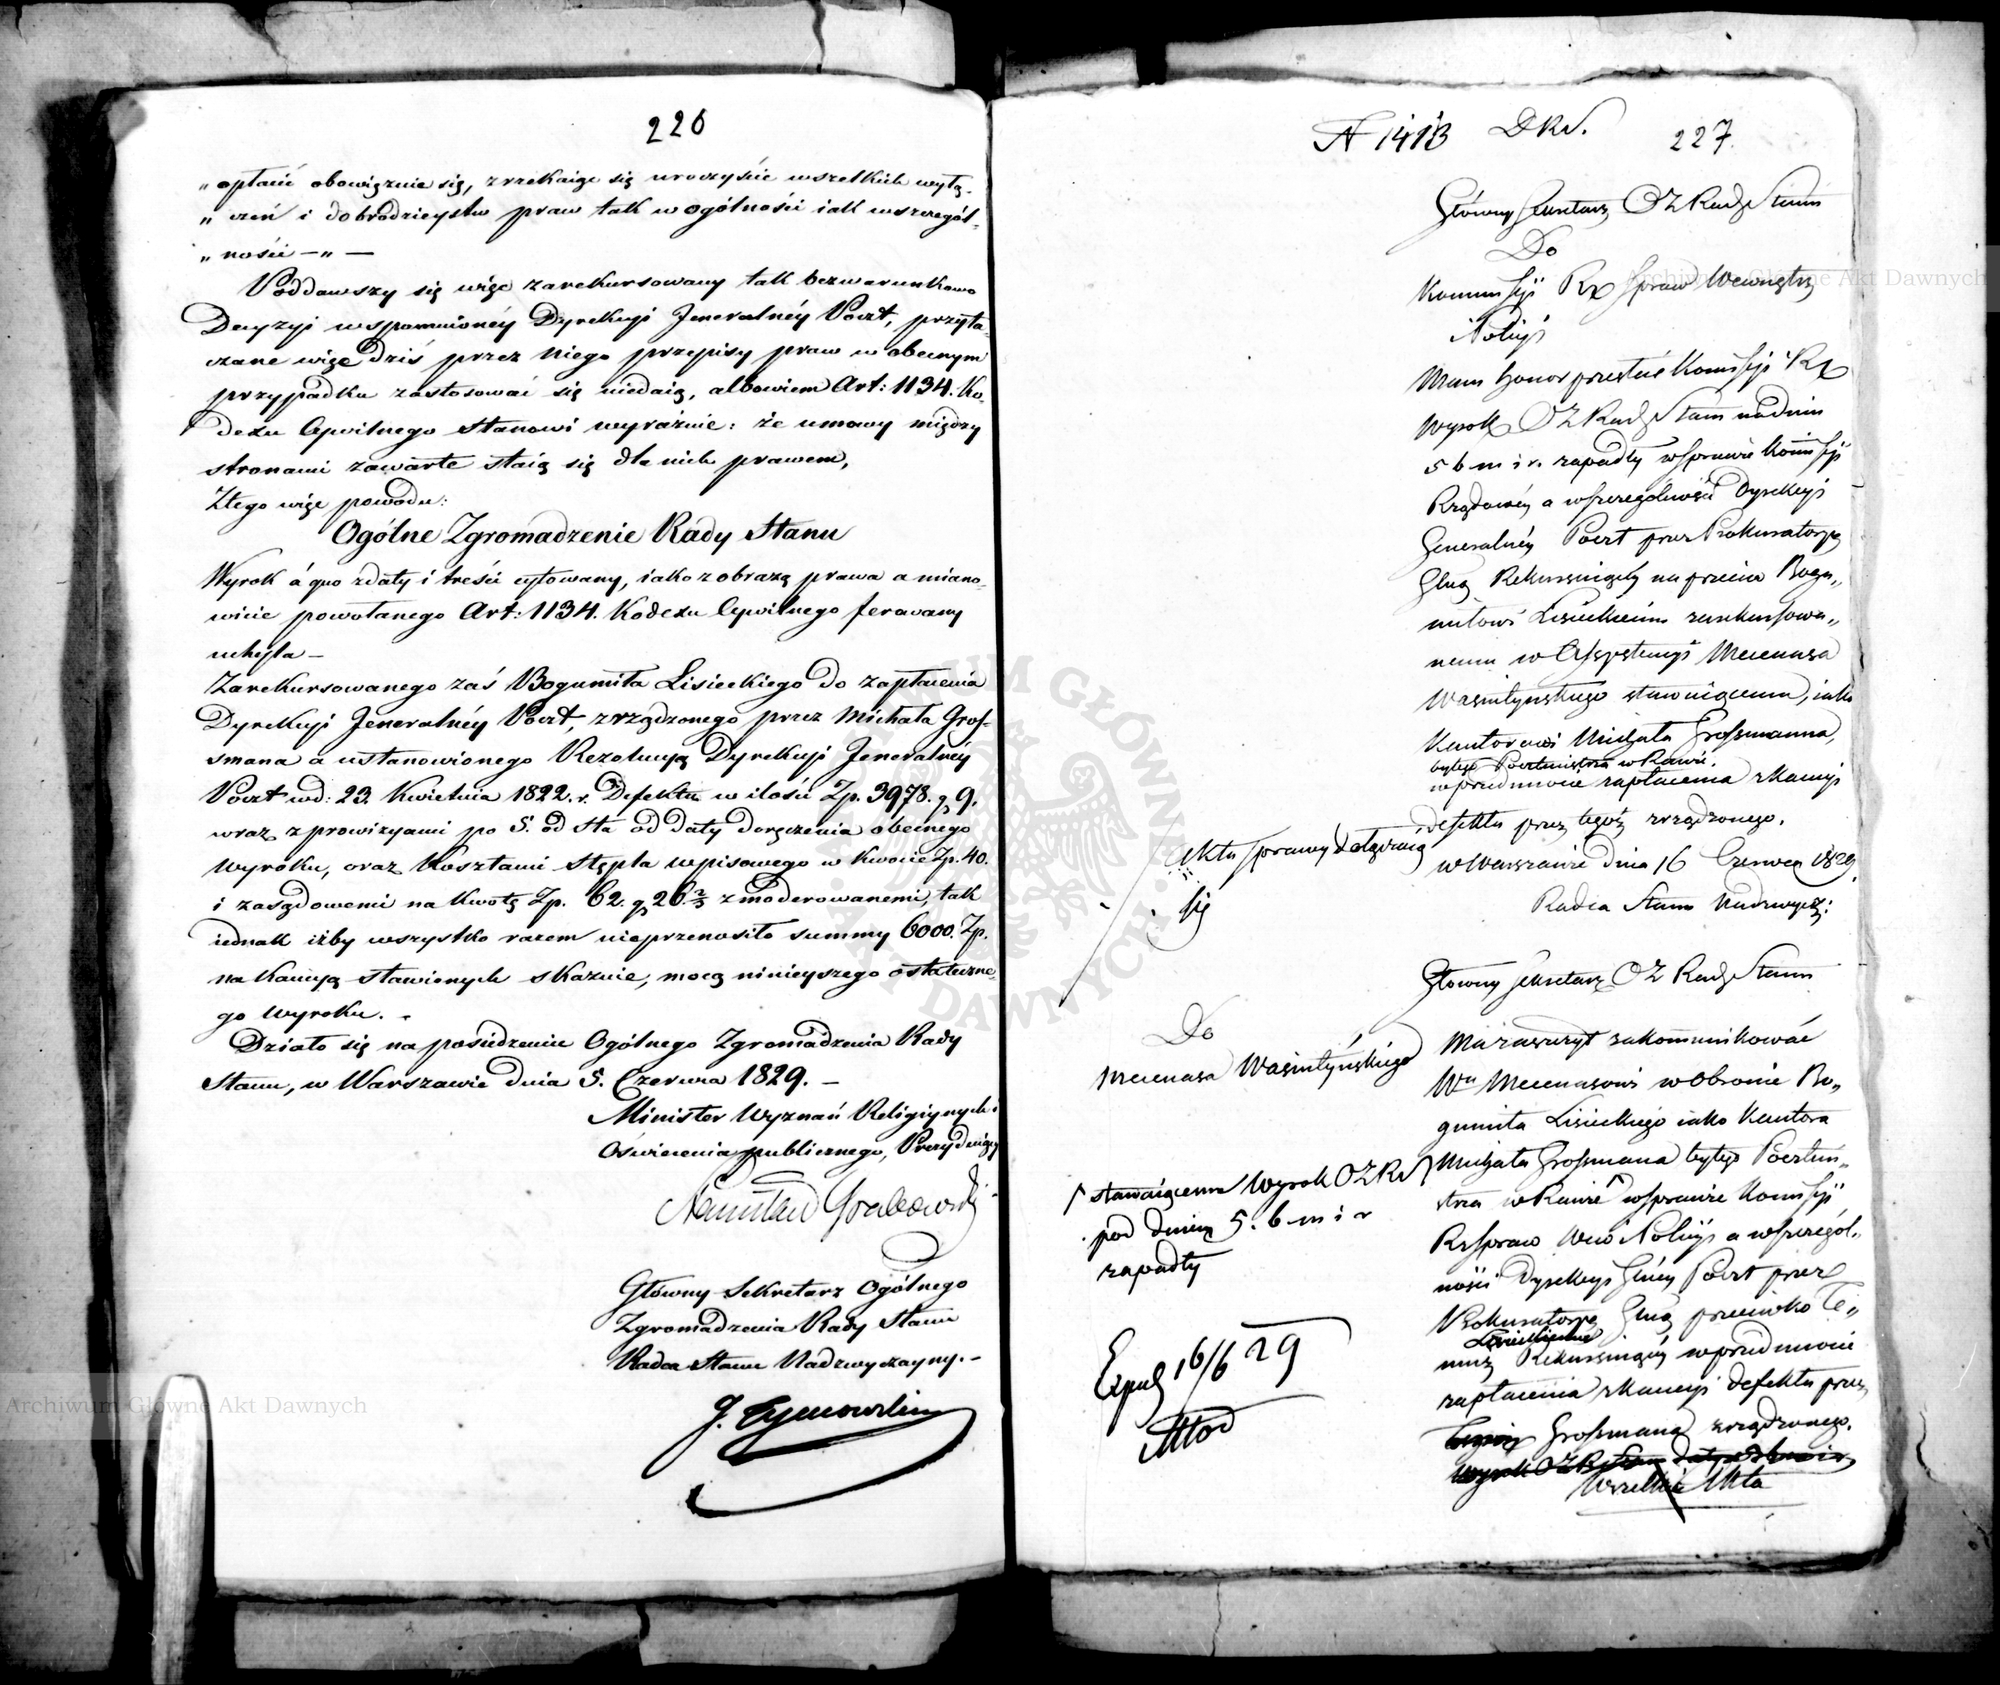 226
„ opłacić obowięzuie się, zrzekaiąc się uroczyście wszelkich wyłą-
„ czeń i dobrodzieystw praw tak w ogólności iak w szczegól-
„ ności —„—
Poddawszy się więc zarekursowany tak bezwarunkowo
Decyzyi wspomnionéy Dyrekcyi Jeneralnéy Poczt, przyta-
czane więc dziś przez niego przepisy praw w obecnym
przypadku zastosować się niedaią, albowiem Art: 1134. Ko-
dexu Cywilnego stanowi wyraźnie: że umowy między
stronami zawarte staią się dla nich prawem,
Z tego więc powodu:
Ogólne Zgromadzenie Rady Stanu
Wyrok á quo z daty i treści cytowany, iako z obrazą prawa a miano-
wicie powołanego Art: 1134. Kodexu Cywilnego ferowany
uchyla —
Zarekursowanego zaś Bogumiła Lisieckiego do zapłacenia
Dyrekcyi Jeneralnéy Poczt, zrządzonego przez Michała Gros-
smana a ustanowionego Rezolucyą Dyrekcyi Jeneralnéy
Poczt wd: 23. Kwietnia 1822. r. Defektu w ilości Zp. 3978. g 9.
wraz z prowizyami po 5. od sta od daty doręczenia obecnego
Wyroku, oraz Kosztami Stępla wpisowego w kwocie Zp. 40.
i zasądowemi na kwotę Zp. 62. g 26 2/3 zmoderowanemi, tak
iednak iżby wszystko razem nieprzenosiło summy 6000. Zp.
na Kaucyą stawionych skazuie, mocą ninieyszego ostateczne-
go Wyroku. .
Działo się na posiedzeniu Ogólnego Zgromadzenia Rady
Stanu, w Warszawie dnia 5. Czerwca 1829. —
Minister Wyznań Religiynych i
Oświecenia publicznego, Prezyduiący
Stanisław Grabowski
Główny Sekretarz Ogólnego
Zgromadzenia Rady Stanu
Radca Stanu Nadzwyczayny. —
J. Tymowski
N 1413 DRS. 227.
Główny Sekretarz OZ Rady Stanu
Do
Kommissyi Rz Spraw Wewnętrz
i Policyi
Mam honor przesłać Komissyi Rz
Wyrok OZ Rady Stanu na dniu
5 b m i r. zapadły w sprawie Komissyi
Rządowéy a w szczególności Dyrekcyi
Generalnéy Poczt przez Prokuratoryą
Glną Rekursuiącéy na przeciw Bogu„
miłowi Lisieckiemu zarekursowa„
nemu w Assystencyi Mecenasa
Wasiutyńskiego stawaiącemu, iako
Kautorowi Michała Grossmanna,
byłego Pocztmistrza w Rawie.
w przedmiocie zapłacenia z kaucyi
defektu przez tegoż zrządzonego.
Akta sprawy dotyczące
się
w Warszawie dnia 16 Czerwca 1829.
Radca Stanu Nadzwycz:
Główny Sekretarz OZ Rady Stanu
Do
Mecenasa Wasiutyńskiego
Ma zaszczyt zakommunikować
Wu Mecenasowi w Obronie Bo„
gumiła Lisieckiego iako Kautora
Michała Grossmana byłego Pocztmi„
strza w Rawie w sprawie Komissyi
Rz Spraw Wew i Policyi a w szczegól„
ności Dyrekcyi Glnéy Poczt przez
Prokuratoryą Glną przeciwko Te„
Lisieckiemu
muż Rekursuiącéy w przedmiocie
zapłacenia z kaucyi defektu przez
Grossmana zrządzonego.
wszelkie Akta
stawaiącemu Wyrok OZ RS
pod dniem 5. b m i r
zapadły
Exped 16/6 29